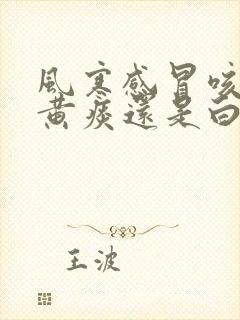 風寒感冒咳
黃痰還是白
王波